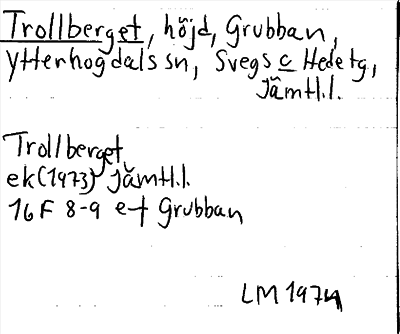 Trollberget, höjd, Grubban,
Ytterhogdals sn, Svegs c Hede tg,
Jämtl.l.
Trollberget
ek (1973) Jämtl.l.
16 F 8-9 e-f Grubban
LM 1974